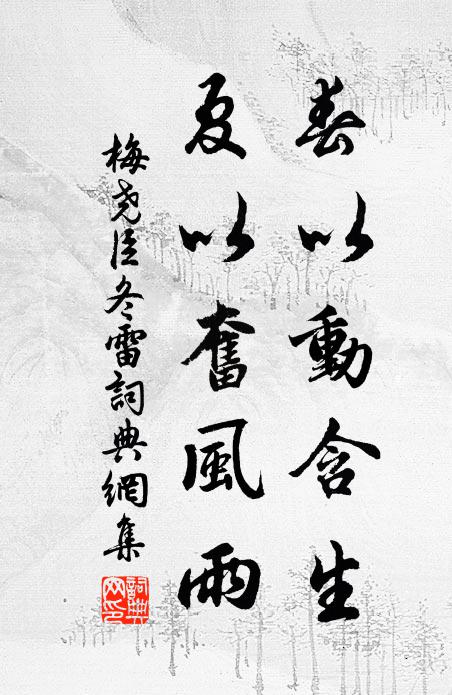 春以動含生
夏以奮風雨
梅尧臣冬雷詞典網集
詞典網印